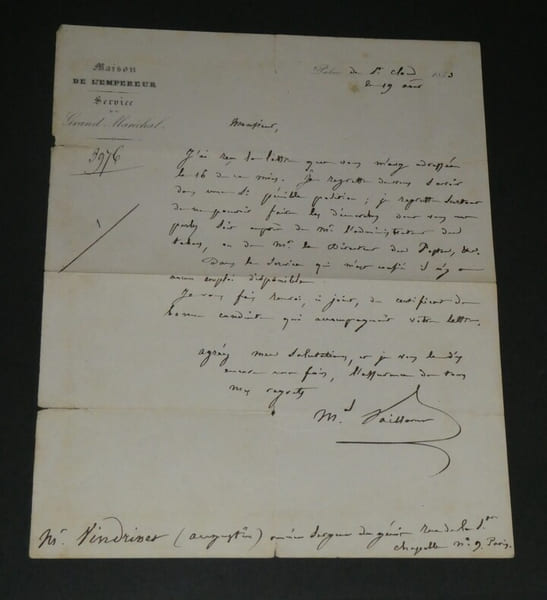 Maison
DE L'EMPEREUR
Service
du
Grand Maréchal.
3976
Palais de St Cloud 1853
le 19 août
Monsieur,
J'ai reçu la lettre que vous m'avez adressée
le 16 de ce mois. Je regrette de vous savoir
dans une si pénible position ; je regrette surtout
de ne pouvoir faire les démarches dont vous me
parlez soit auprès de Mr. l'administrateur des
tabacs, ou de Mr. le Directeur des Postes, &a.
Dans le service qui m'est confié il n'y a
aucun emploi disponible.
Je vous fais renvoi, ci joint, du certificat de
bonne conduite qui accompagnait votre lettre.
agréez mes salutations, et je vous le dis
encore une fois, l'assurance de tous
mes regrets
Mal Vaillant
Mr. Vindrinet (augustin) ancien Sergent du génie rue de la Ste
chapelle no 9. Paris.